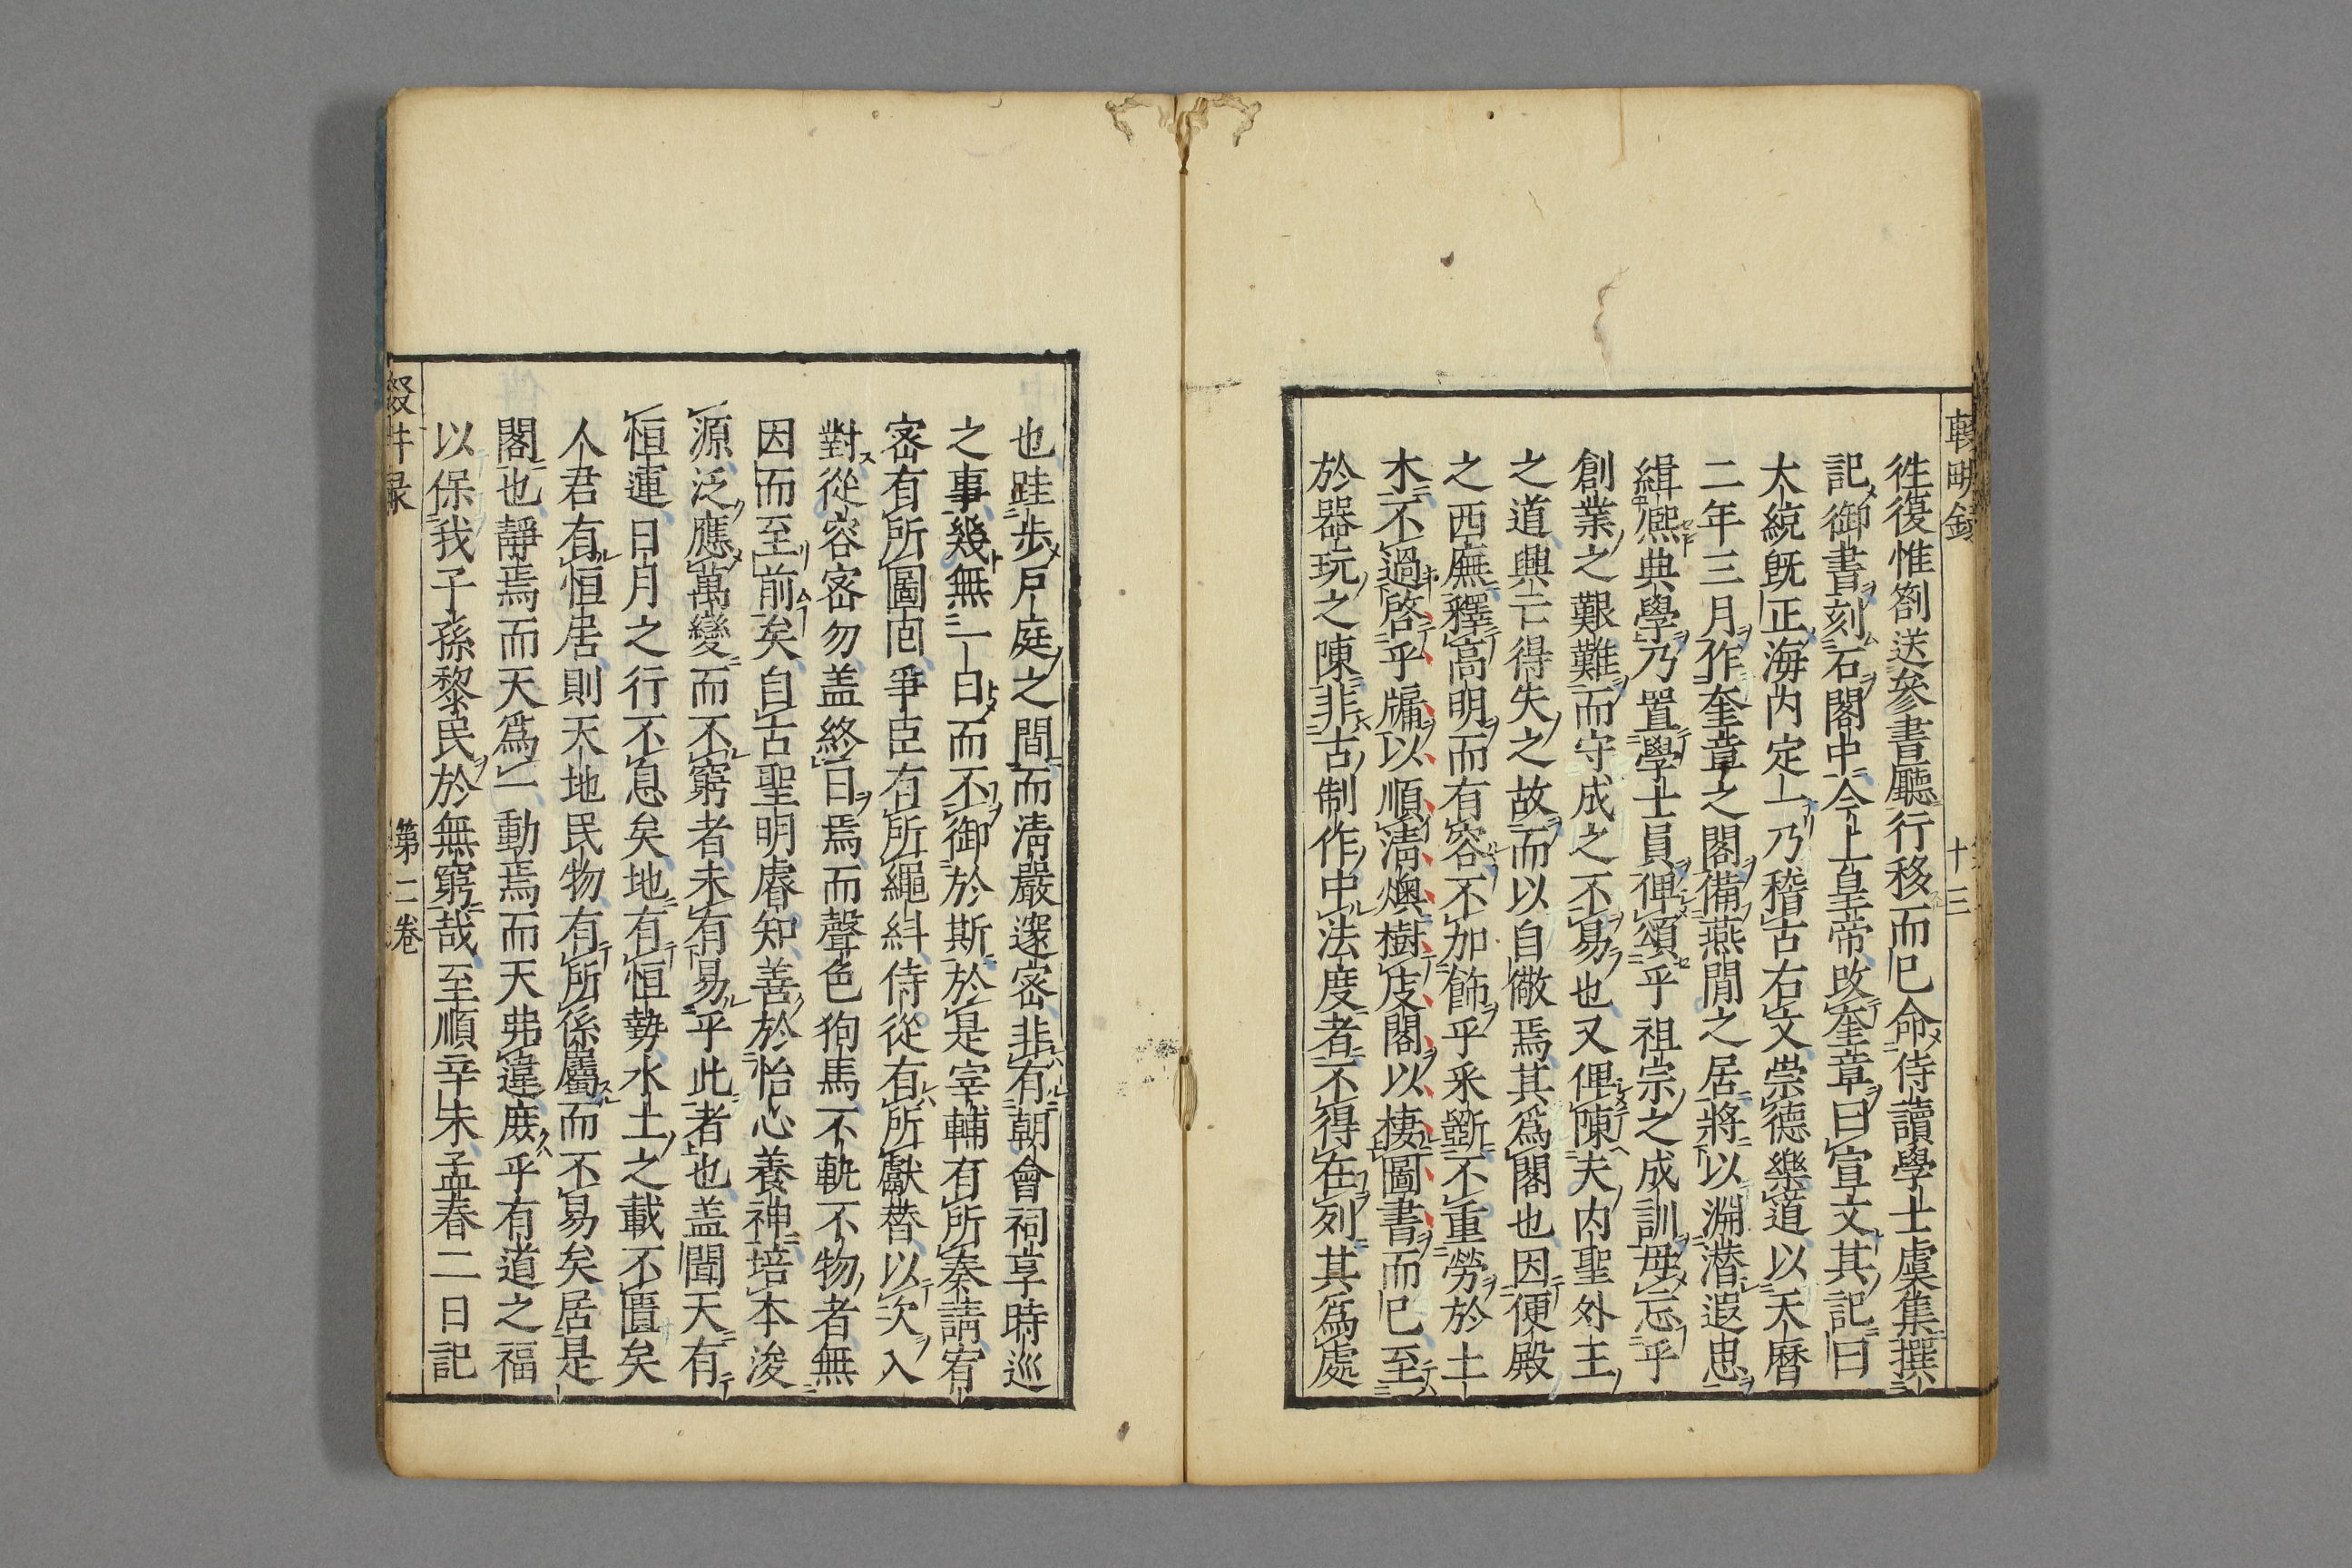 輟畊録
十三
徃復惟劄送參書廳行移而已命侍讀學士虞集撰
記御書刻石閣中今上皇帝改奎章曰宣文其記曰
大統既正海内定一乃稽古右文崇德樂道以天曆
二年三月作奎章之閣備燕閒之居將以淵潜遐思
緝熈典學乃置學士員俾頌乎祖宗之成訓毋忘乎
創業之艱難而守成之不易也又俾陳夫内聖外王
之道興亡得失之故而以自儆焉其爲閣也因便殿
之西廡釋高明而有容不加飾乎采斵不重勞於土
木不過啓乎牖以順淸燠樹庋閣以棲圖書而已至
於器玩之陳非古制作中法度者不得在列其爲處
也跬歩戶庭之間而淸嚴邃宻非有朝會祠享時巡
之事幾無一日而不御於斯於是宰輔有所奏請宥
宻有所圖囘爭臣有所繩糾侍從有所獻替以次入
對從容宻勿盖終日焉而聲色狗馬不軌不物者無
因而至前矣自古聖明睿知善於怡心養神培本浚
源泛應萬變而不窮者未有易乎此者也盖聞天有
恒運日月之行不息矣地有恒勢水土之載不匱矣
人君有恒居則天地民物有所係屬而不易矣居是
閣也靜焉而天爲一動焉而天弗違庻乎有道之福
以保我子孫黎民於無窮哉至順辛未孟春二日記
第二卷